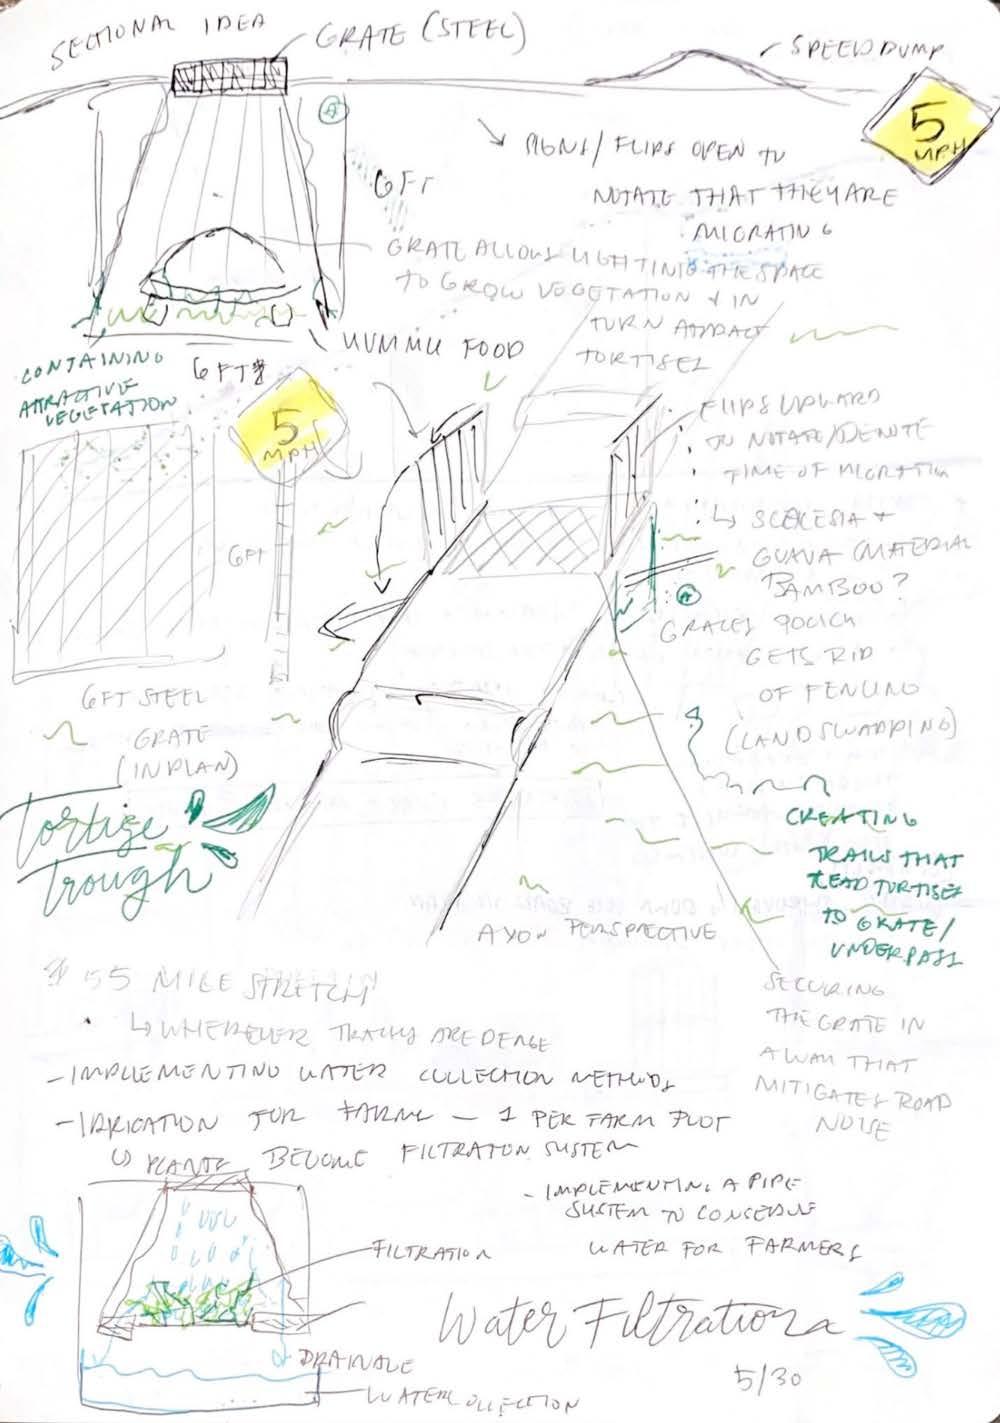 SECTIONAL IDEA
GRATE (STEEL)
SPEED DUMP
5
MPH
A
6 FT
SIGNS / FLIPS OPEN TO
NOTATE THAT THEY ARE
MIGRATING
GRATE ALLOWS LIGHT INTO THE SPACE
TO GROW VEGETATION & IN
TURN ATTRACT
TORTISES
YUMMU FOOD
6 FT
CONTAINING
ATTRACTIVE
VEGETATION
5
MPH
6 FT
FLIPS UPWARD
TO NOTATE/DENOTE
TIME OF MIGRATION
↳ SCOLESIA +
GUAVA (MATERIAL
BAMBOO?
A
GETS RID
OF FENCING
(LAND SWAPPING)
6 FT STEEL
GRATE
(IN PLAN)
Tortize
Trough
CREATING
TRAILS THAT
LEAD TORTISES
TO GRATE/
UNDERPASS
AXON PERSPECTIVE
SECURING
THE GRATE IN
A WAY THAT
MITIGATES ROAD
NOISE
55 MILE STRETCH
↳ WHEREVER TRACKS ARE DENSE
- IMPLEMENTING WATER COLLECTION METHODS
- IRRIGATION FOR FARMS - 1 PER FARM PLOT
↳ PLANTS BECOME FILTRATION SYSTEM
- IMPLEMENTING A PIPE
SYSTEM TO CONSERVE
WATER FOR FARMERS
FILTRATION
Water Filtration
DRAINAGE
WATER COLLECTION
5/30